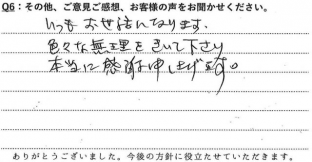 Q6：その他、ご意見ご感想、お客様の声をお聞かせください。
いつもお世話になります。
色々な無理をきいて下さり
本当に感謝申し上げます。
ありがとうございました。今後の方針に役立たせていただきます。